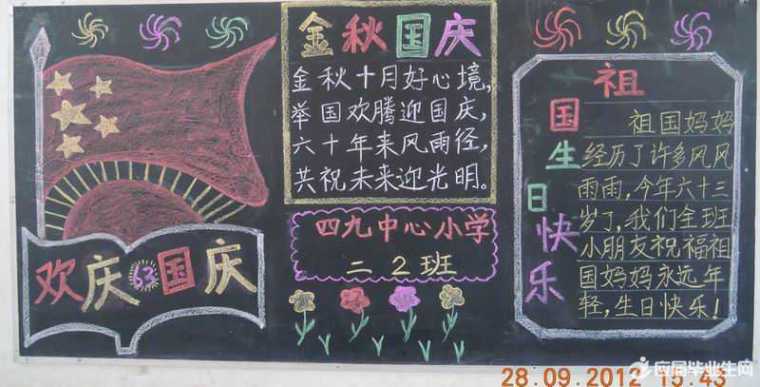 欢庆63国庆
金秋国庆
金秋十月好心境,
举国欢腾迎国庆,
六十年来风雨径,
共祝未来迎光明。
四九中心小学
二2班
祖国生日快乐
祖国妈妈
经历了许多风风
雨雨,今年六十三
岁了,我们全班
小朋友祝福祖
国妈妈永远年
轻,生日快乐!
28.09.2012 15:43
应届毕业生网